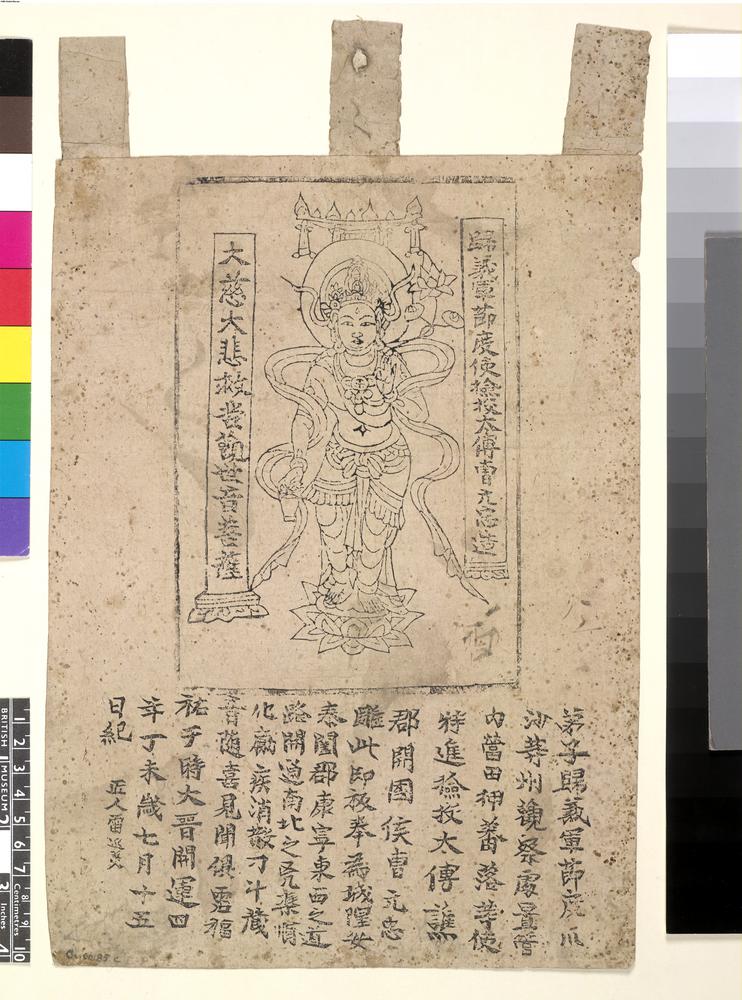 歸義軍節度使檢校太傅曹元忠造
大慈大悲救苦觀世音菩薩
弟子歸義軍節度瓜
沙等州觀察處置管
內營田押蕃落等使
特進檢校太傅譙
郡開國侯曹元忠
雕此印板奉為城隍安
泰闔郡康寧東西之道
路開通南北之兇渠順
化厲疾消散刁斗藏
音隨喜見聞俱霑福
祐于時大晉開運四
年丁未歲七月十五
日紀
匠人雷延美
BRITISH MUSEUM
1 2 3 4 5 6 7 8 9 10
Centimetres
Inches